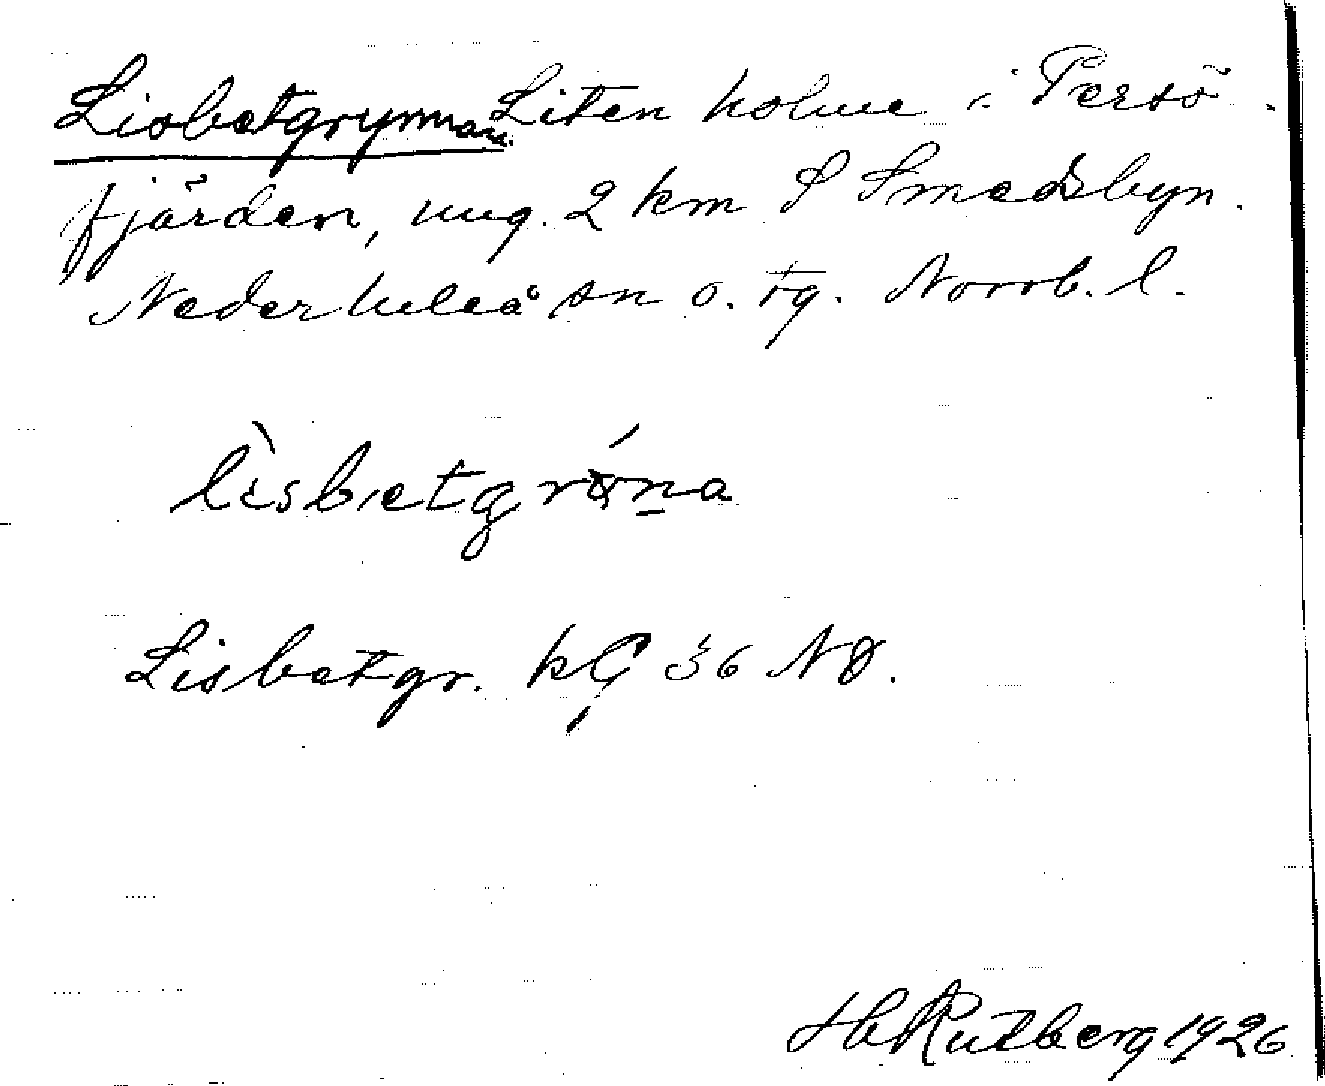 Lisbetgrynnan. Liten holme i Persö-
fjärden, ung. 2 km S Smedsbyn.
Nederluleå sn o. tg. Norrb. l.
lìsbetgrǿna
Lisbetgr. kG 36 NØ.
H Rutberg 1926